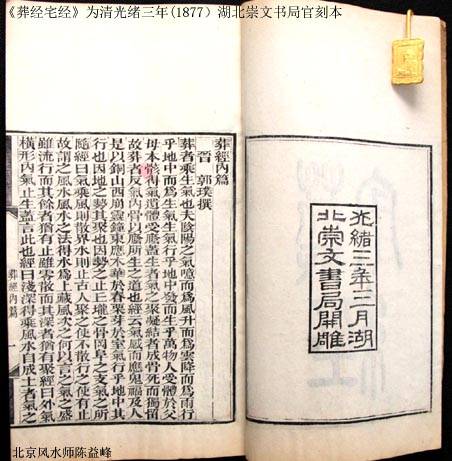 《葬经宅经》为清光绪三年(1877) 湖北崇文书局官刻本
光緒三年三月湖
北崇文書局開雕
葬經內篇
晉 郭璞撰
葬者乘生氣也夫陰陽之氣噫而為風升而為雲降而為雨行
乎地中而為生氣生氣行乎地中發而生乎萬物人受體於父
母本骸得氣遺體受廕蓋生者氣之聚凝結者成骨死而獨留
故葬者反氣內骨以廕所生之道也經云氣感而應鬼福及人
是以銅山西崩靈鐘東應木華於春栗芽於室氣行乎地中其
行也因地之勢其聚也因勢之止丘壠之骨岡阜之支氣之所
隨經曰氣乘風則散界水則止古人聚之使不散行之使有止
故謂之風水風水之法得水為上藏風次之何以言之氣之盛
雖流行而其餘者猶有止雖零散而其深者猶有聚經曰外氣
橫形內氣止生蓋言此也經曰淺深得乘風水自成土者氣之
葬經內篇 一
北京风水师陈益峰